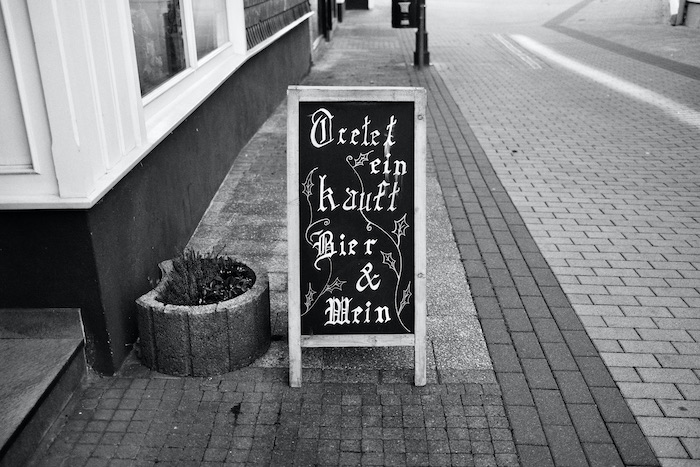 Tretet
ein
kauft
Bier
&
Wein